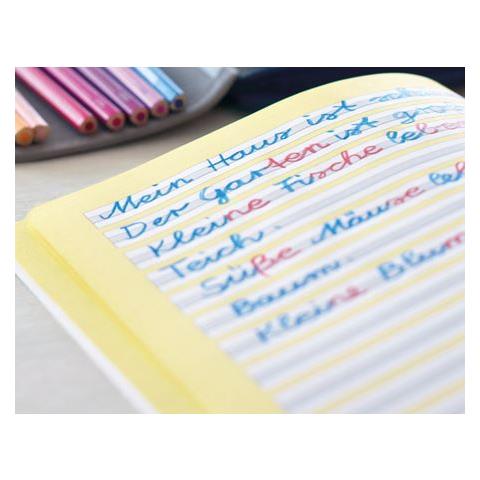 Mein Haus ist
Der Garten ist
Kleine Fische leben
Teich.
Süße Mäuse
Baum.
Kleine